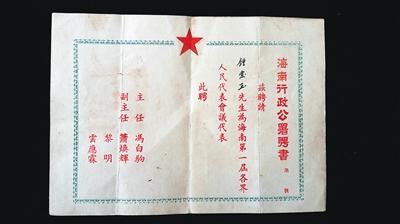 海南行政公署聘書 第 號
茲聘請
玉先生為海南第一屆各界
人民代表會議代表
此聘
主任 馮白駒
副主任 蕭煥輝
黎明
雲應霖